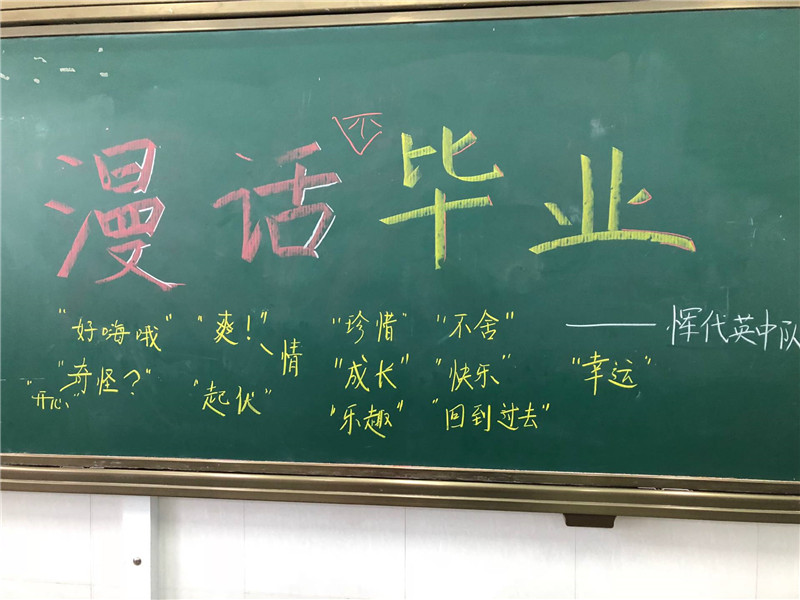 漫话毕业
“好嗨哦” “爽!” “珍惜” “不舍” ——恽代英中队
“奇怪?” 情 “成长” “快乐” “幸运”
“开心” “起伏” “乐趣” “回到过去”